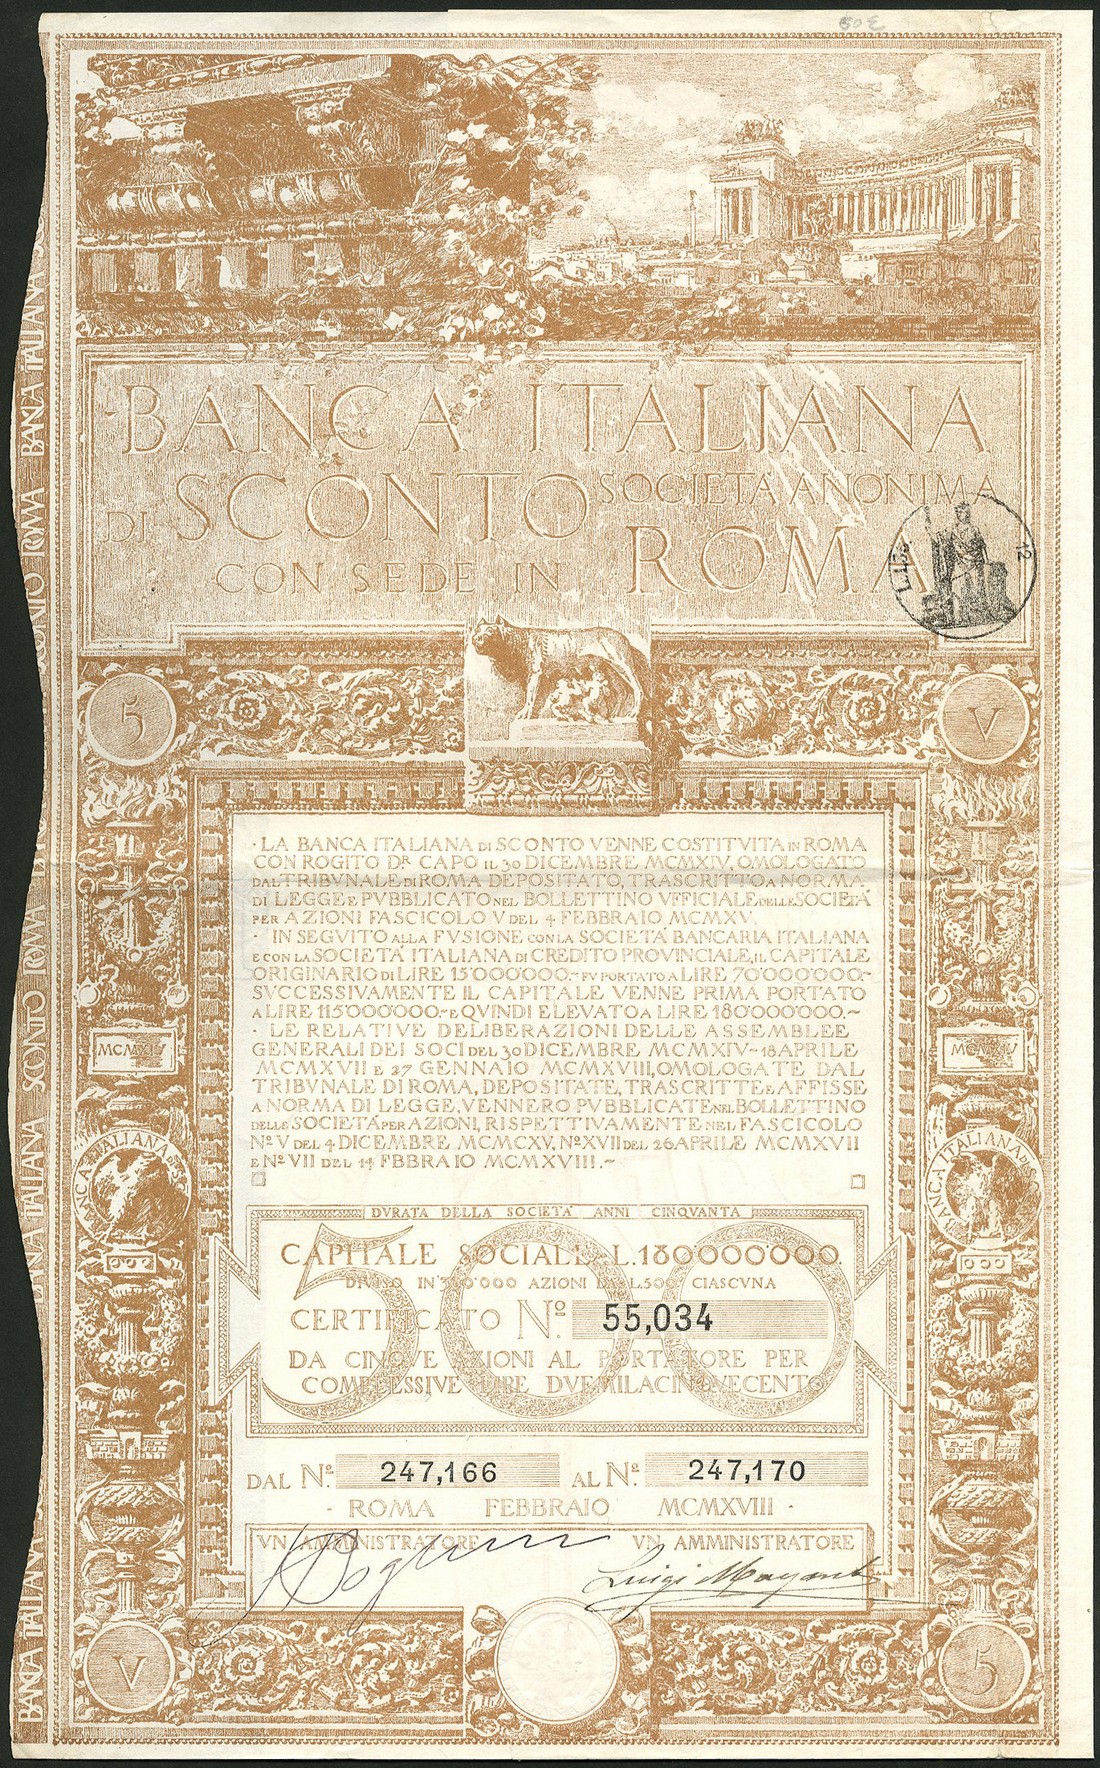 BANCA ITALIANA
DI SCONTO SOCIETÀ ANONIMA
CON SEDE IN ROMA
L.1.20 12
5 V
·LA BANCA ITALIANA DI SCONTO VENNE COSTITVITA IN ROMA
CON ROGITO DR CAPO IL 30 DICEMBRE MCMXIV, OMOLOGATO
DAL TRIBVNALE DI ROMA DEPOSITATO, TRASCRITTO A NORMA
DI LEGGE E PVBBLICATO NEL BOLLETTINO VFFICIALE DELLE SOCIETÀ
PER AZIONI FASCICOLO V DEL 4 FEBBRAIO MCMXV.
· IN SEGVITO ALLA FVSIONE CON LA SOCIETÀ BANCARIA ITALIANA
E CON LA SOCIETÀ ITALIANA DI CREDITO PROVINCIALE, IL CAPITALE
ORIGINARIO DI LIRE 15'000'000.~ FV PORTATO A LIRE 70'000'000~
SVCCESSIVAMENTE IL CAPITALE VENNE PRIMA PORTATO
A LIRE 115'000'000.~ E QVINDI ELEVATO A LIRE 180'000'000.~
· LE RELATIVE DELIBERAZIONI DELLE ASSEMBLEE
GENERALI DEI SOCI DEL 30 DICEMBRE MCMXIV~18 APRILE
MCMXVII E 27 GENNAIO MCMXVIII, OMOLOGATE DAL
TRIBVNALE DI ROMA, DEPOSITATE, TRASCRITTE E AFFISSE
A NORMA DI LEGGE, VENNERO PVBBLICATE NEL BOLLETTINO
DELLE SOCIETÀ PER AZIONI, RISPETTIVAMENTE NEL FASCICOLO
No V DEL 4 DICEMBRE MCMCXV, No XVII DEL 26 APRILE MCMXVII
E No VII DEL 14 FBBRAIO MCMXVIII.~
MCMXIV MCMXIV
BANCA ITALIANA DI S. BANCA ITALIANA DI S.
DVRATA DELLA SOCIETÀ ANNI CINQVANTA
500
CAPITALE SOCIALE L.180'000'000.
DIVISO IN 360'000 AZIONI DA L.500 CIASCVNA
CERTIFICATO No. 55,034
DA CINQVE AZIONI AL PORTATORE PER
COMPLESSIVE LIRE DVEMILACINQVECENTO
DAL No. 247,166 AL No. 247,170
· ROMA FEBBRAIO MCMXVIII ·
VN AMMINISTRATORE VN AMMINISTRATORE
Luigi
V 5
BANCA ITALIANA SCONTO ROMA BANCA ITALIANA SCONTO ROMA BANCA ITALIANA